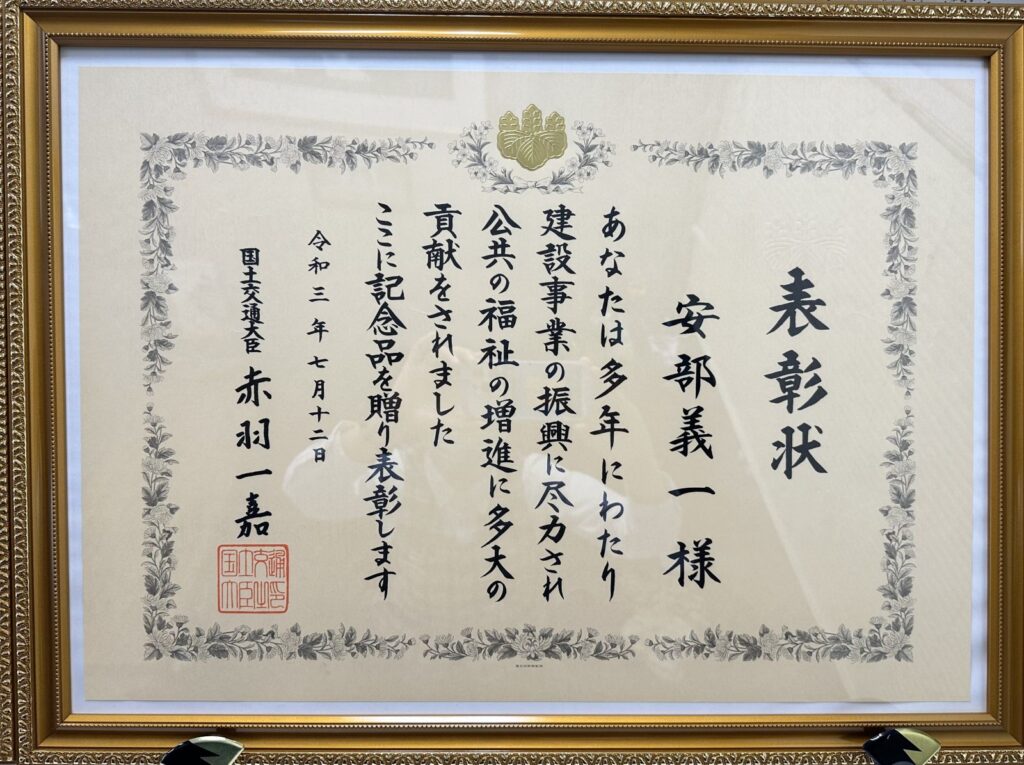 表彰状
安部義一様
あなたは多年にわたり
建設事業の振興に尽力され
公共の福祉の増進に多大の
貢献をされました
ここに記念品を贈り表彰します
令和三年七月十二日
国土交通大臣 赤羽一嘉